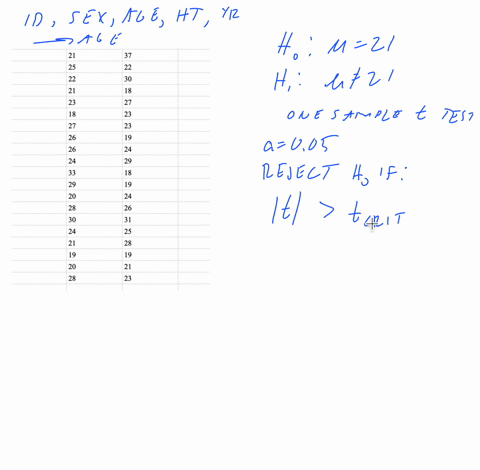 ID, SEX, AGE, HT, YR
→ AGE
21 37
25 22
22 30
21 18
23 27
18 23
27 23
26 19
26 24
24 29
33 18
29 19
20 24
28 26
30 31
24 25
21 28
19 19
20 21
28 23
H₀: μ = 21
H₁: μ ≠ 21
ONE SAMPLE t TEST
a = 0.05
REJECT H₀ IF:
|t| > t CRIT